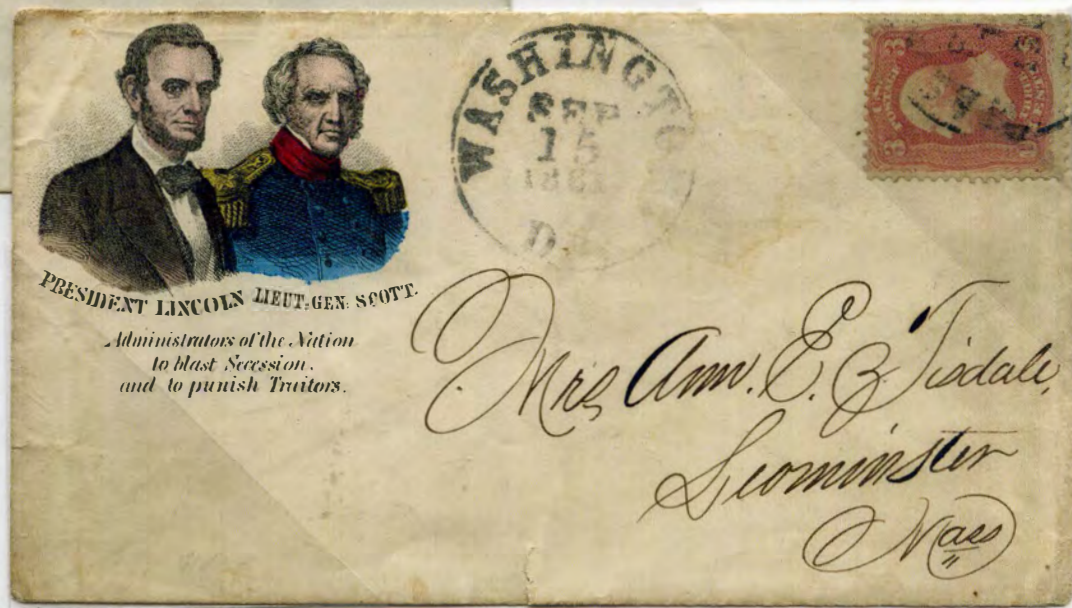 PRESIDENT LINCOLN LIEUT. GEN: SCOTT.
Administrators of the Nation
to blast Secession,
and to punish Traitors.
WASHINGTON
SEP
15
D.C.
3 3
Mrs Ann. E. Z. Tisdale,
Leominster
Mass